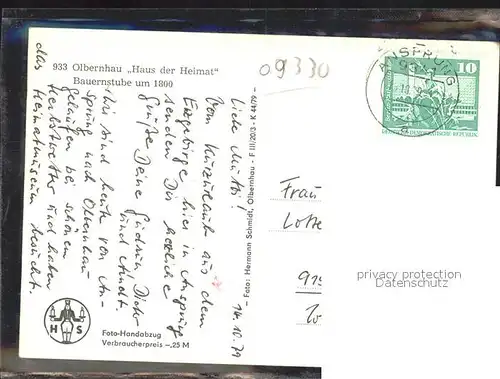 933 Olbernhau „Haus der Heimat“
Bauernstube um 1800
09330
14.10.79
Liebe Mutti!
Vom Kurzurlaub aus dem
Erzgebirge hier in Ansprung
senden Dir herzliche
Grüße Deine Gudrun Dieter
und
Wir sind heute von An-
sprung nach Olbernhau
gelaufen bei schönem
Herbstwetter und haben
das Heimatmuseum besucht.
H S
Foto-Handabzug
Verbraucherpreis –,25 M
Foto: Hermann Schmidt, Olbernhau - F III/20/3 - K 44/79
ANSPRUNG
10
DEUTSCHE DEMOKRATISCHE REPUBLIK
Frau
Lotte
privacy protection
Datenschutz